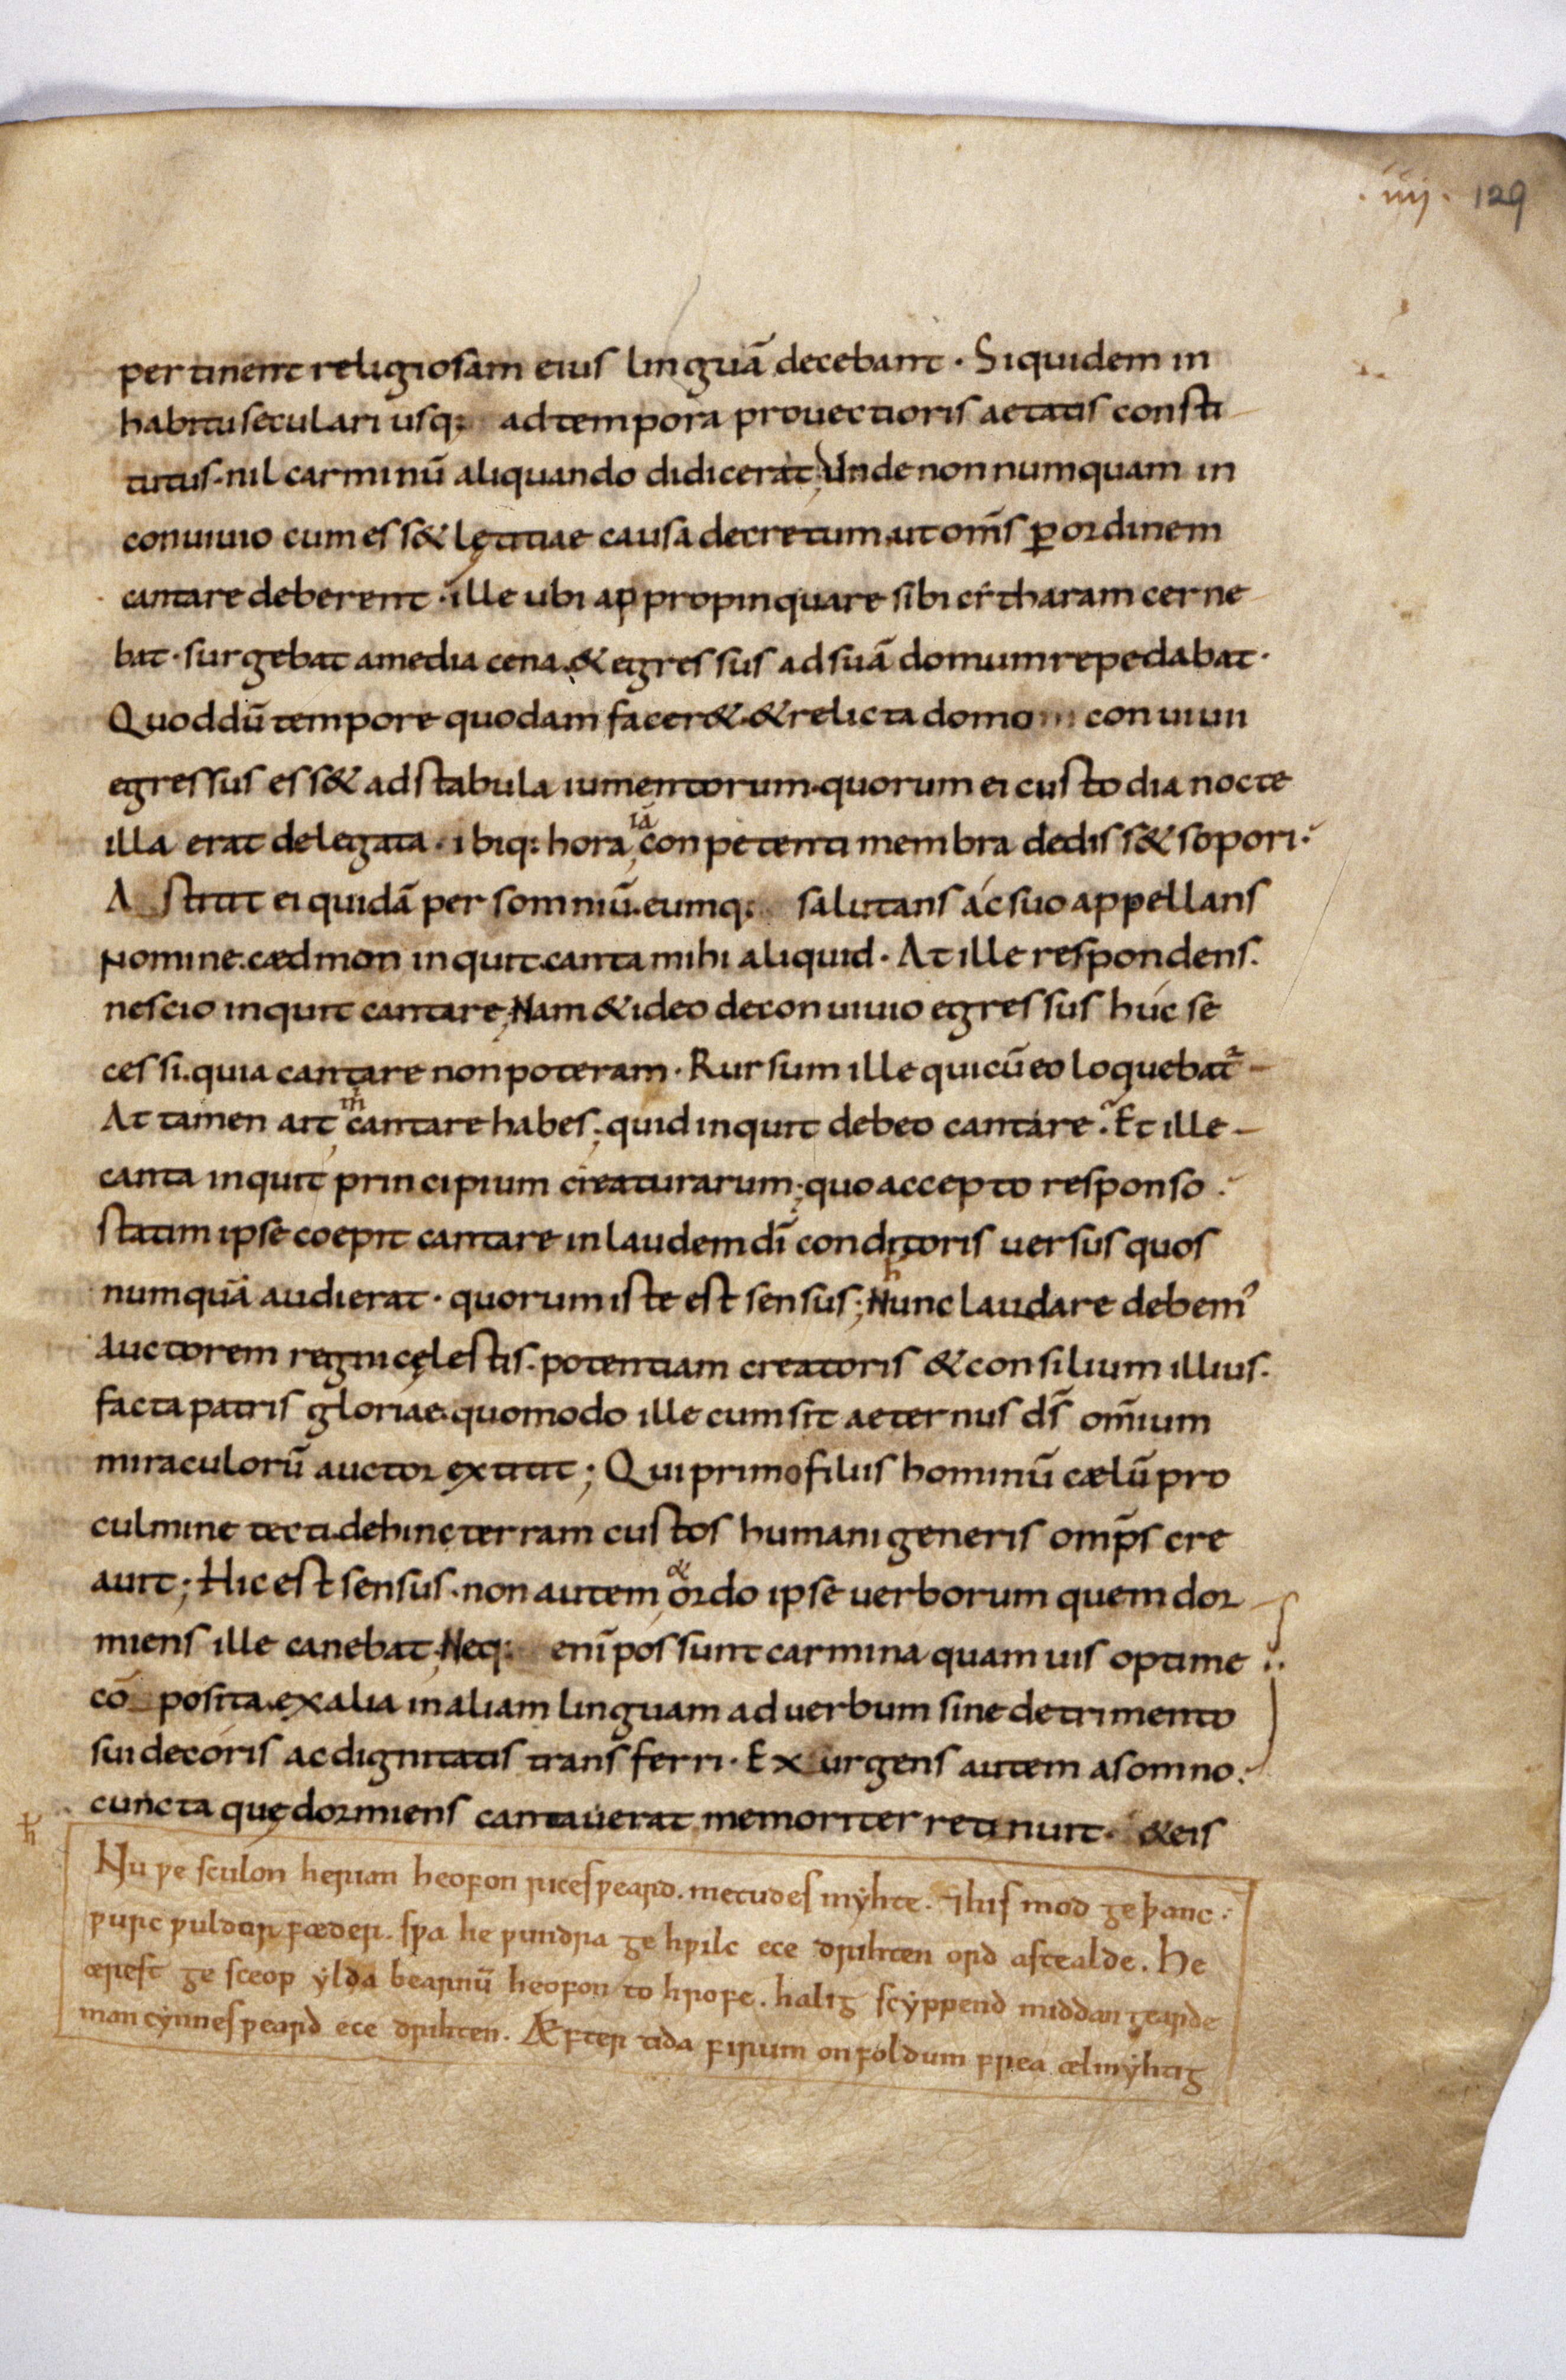 .iiij. 129
pertinent religiosam eius linguā decebant · Siquidem in
habitu seculari usq; ad tempora prouectioris aetatis consti
tutus · nil carminū aliquando didicerat; Unde non numquam in
conuiuio cum ess& lętitiae causa decretum ut om̄s ꝑ ordinem
cantare deberent · ille ubi appropinquare sibi citharam cerne
bat · surgebat a media cena · & egressus ad suā domum repedabat ·
Quod dū tempore quodam facer& · & relicta domo conuiuii
egressus ess& ad stabula iumentorum · quorum ei custodia nocte
illa erat delegata · ibiq; hora iā conpetenti membra dediss& sopori ·
Astitit ei quidā per somniū · eumq; salutans ac suo appellans
nomine · cædmon inquit · canta mihi aliquid · At ille respondens ·
nescio inquit cantare; Nam & ideo de conuiuio egressus huc se
cessi · quia cantare non poteram · Rursum ille qui cū eo loquebat᷑
At tamen ait m̄ cantare habes; quid inquit debeo cantare · Et ille
canta inquit principium creaturarum; quo accepto responso ·
statim ipse coepit cantare in laudem dī conditoris uersus quos
numquā audierat · quorum iste est sensus; Nunc laudare debem᾿
auctorem regni cęlestis · potentiam creatoris & consilium illius ·
facta patris gloriae · quomodo ille cum sit aeternus ds̄ om̄ium
miraculorū auctor extitit; Qui primo filiis hominū cælū pro
culmine tecti · dehinc terram custos humani generis omp̄s cre
auit; Hic est sensus · non autem & ordo ipse uerborum quem dor
miens ille canebat; Neq; enī possunt carmina quamuis optime
cō posita · ex alia in aliam linguam ad uerbum sine detrimento
sui decoris ac dignitatis transferri · Exurgens autem a somno ·
cuncta quę dormiens cantauerat memoriter retinuit · & eis
Nu ƿe sculon herian heofon rices ƿeard . metudes myhte . ⁊ his mod geþanc .
ƿurc ƿuldor fæder . sƿa he ƿundra gehƿilc ece drihten ord astealde . He
ærest ge sceop ylda bearnū heofon to hrofe . halig scyppend middan gearde
man cynnes ƿeard ece drihten . Æfter tida firum on foldum frea ælmyhtig